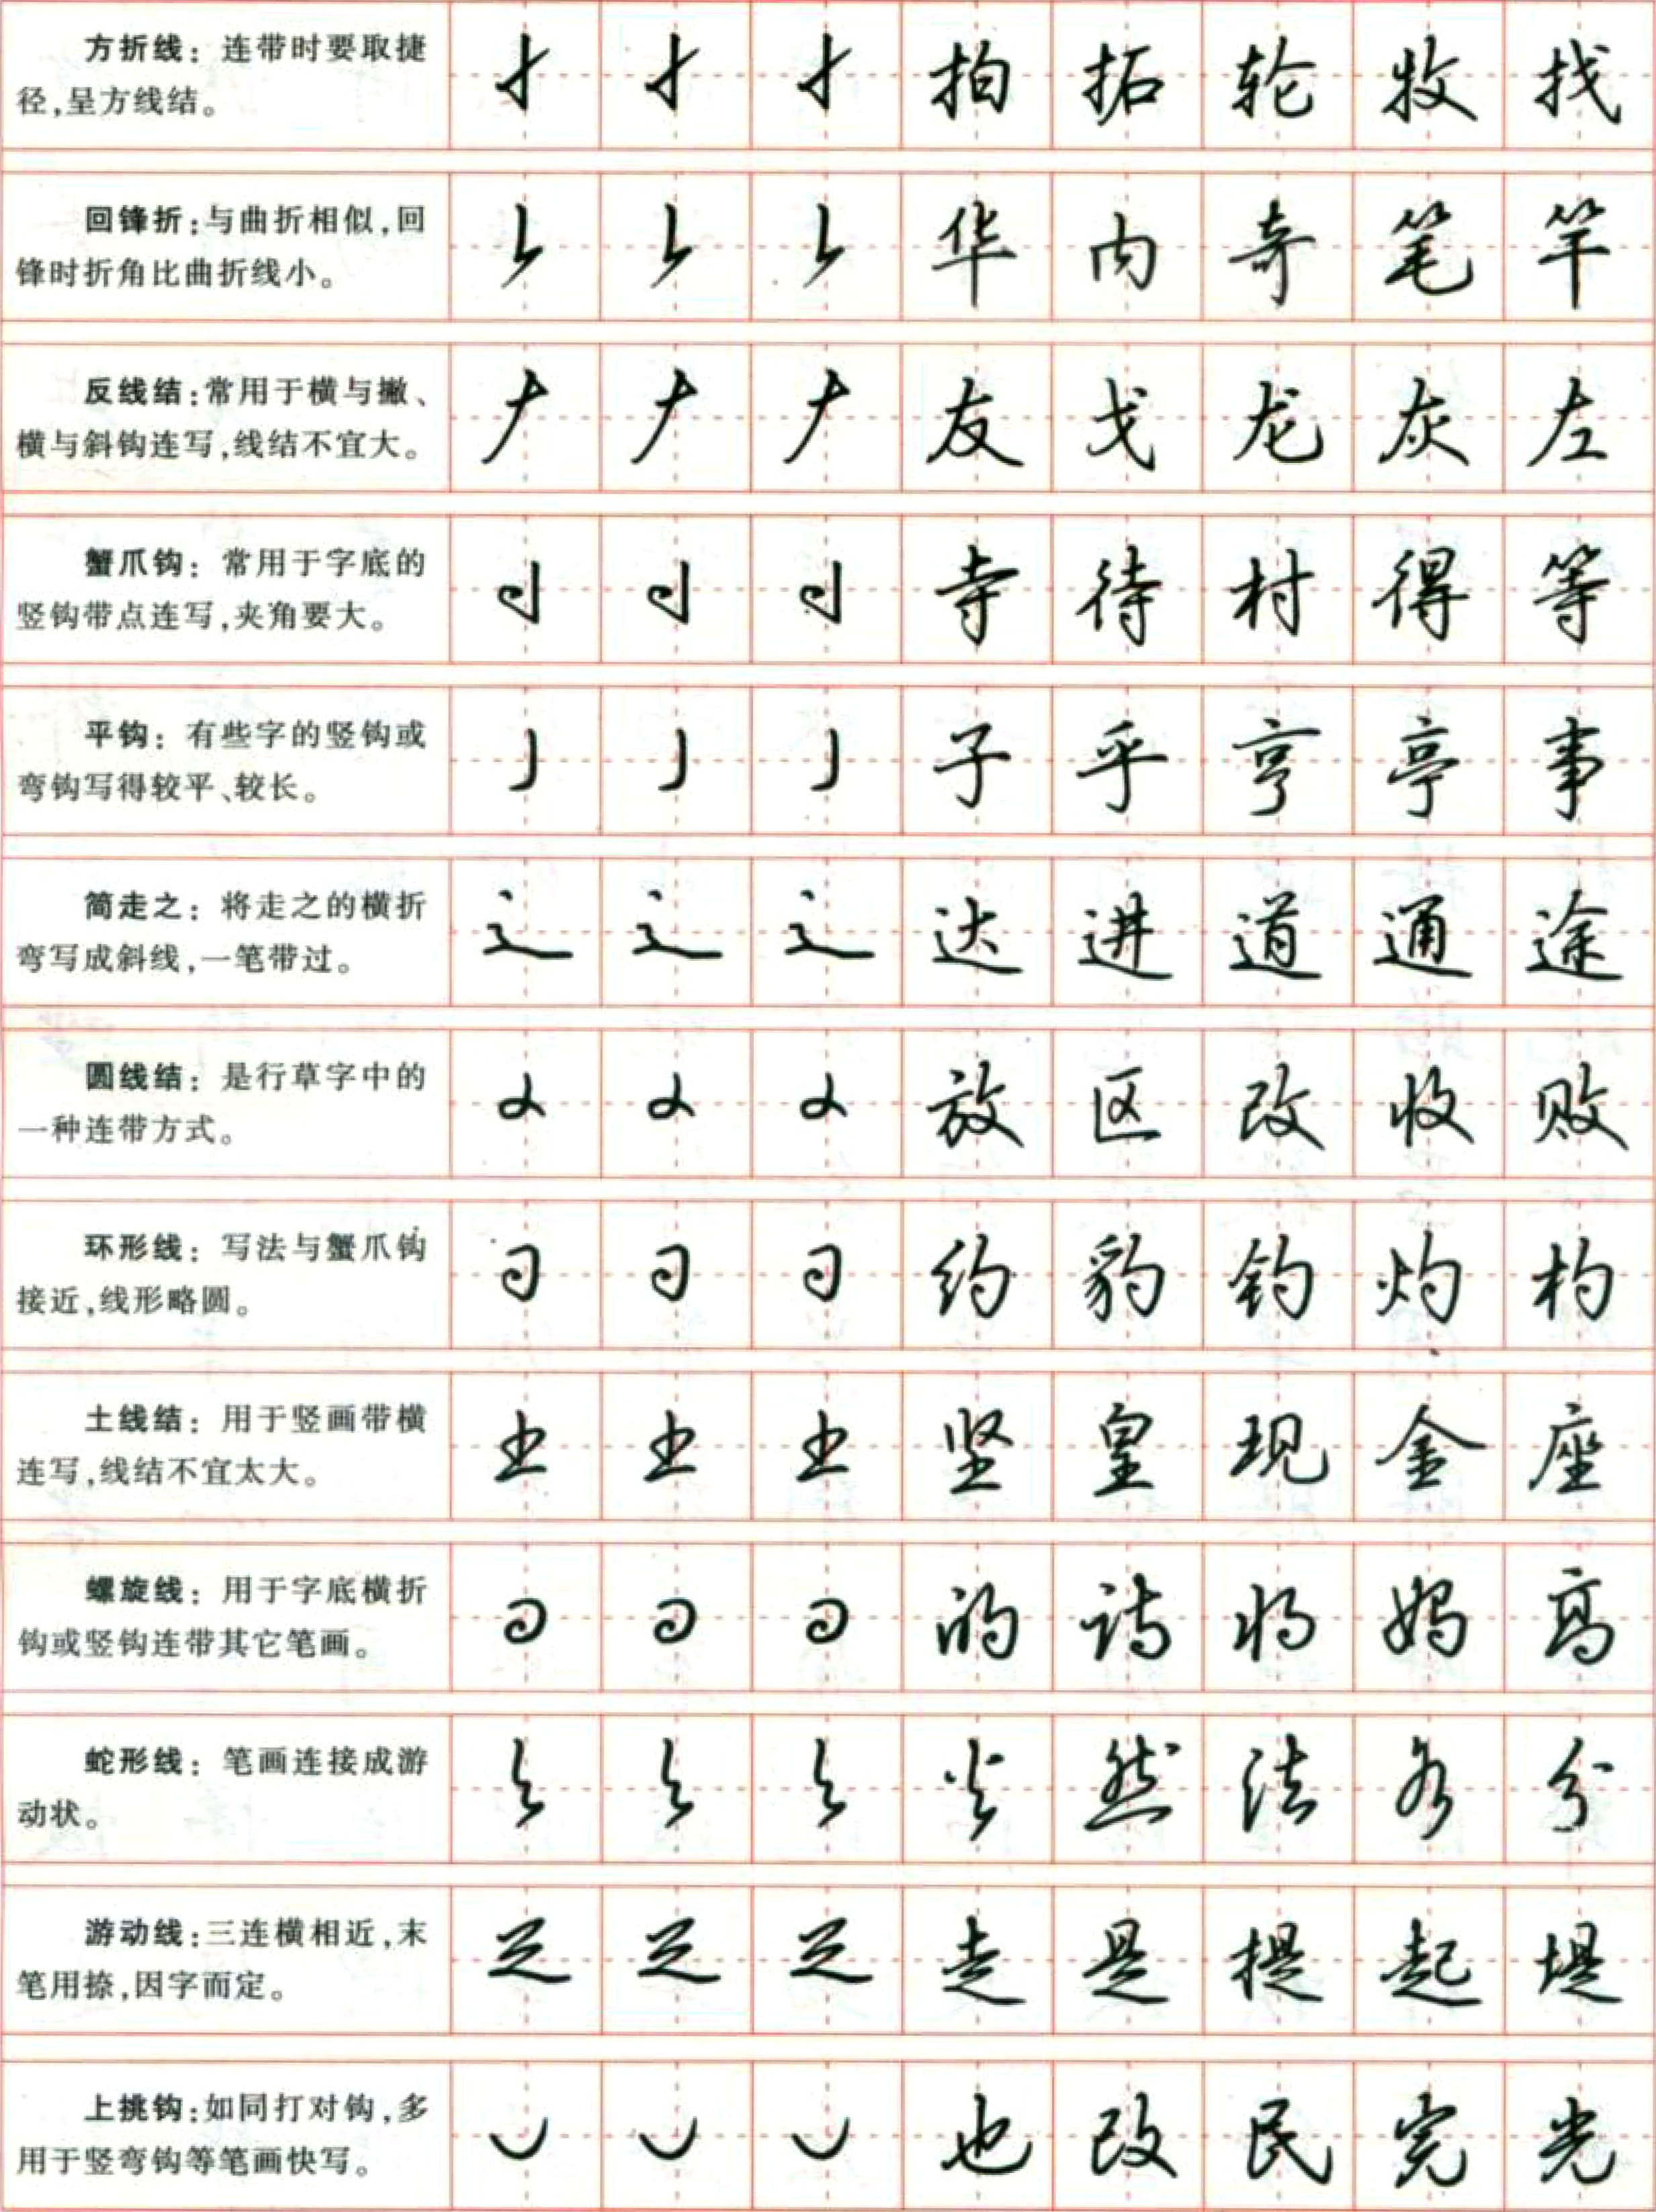 方折线：连带时要取捷
径，呈方线结。
拍 拓 轮 牧 找
回锋折：与曲折相似，回
锋时折角比曲折线小。
华 内 奇 笔 竿
反线结：常用于横与撇、
横与斜钩连写，线结不宜大。
友 戈 龙 灰 左
蟹爪钩：常用于字底的
竖钩带点连写，夹角要大。
寺 待 村 得 等
平钩：有些字的竖钩或
弯钩写得较平、较长。
子 乎 亨 亭 事
简走之：将走之的横折
弯写成斜线，一笔带过。
达 进 道 通 途
圆线结：是行草字中的
一种连带方式。
放 区 改 收 败
环形线：写法与蟹爪钩
接近，线形略圆。
约 豹 钓 灼 杓
土线结：用于竖画带横
连写，线结不宜太大。
坚 皇 现 金 座
螺旋线：用于字底横折
钩或竖钩连带其它笔画。
的 诗 将 妈 高
蛇形线：笔画连接成游
动状。
然 法 分
游动线：三连横相近，末
笔用捺，因字而定。
走 是 提 起 堤
上挑钩：如同打对钩，多
用于竖弯钩等笔画快写。
也 改 民 完 光